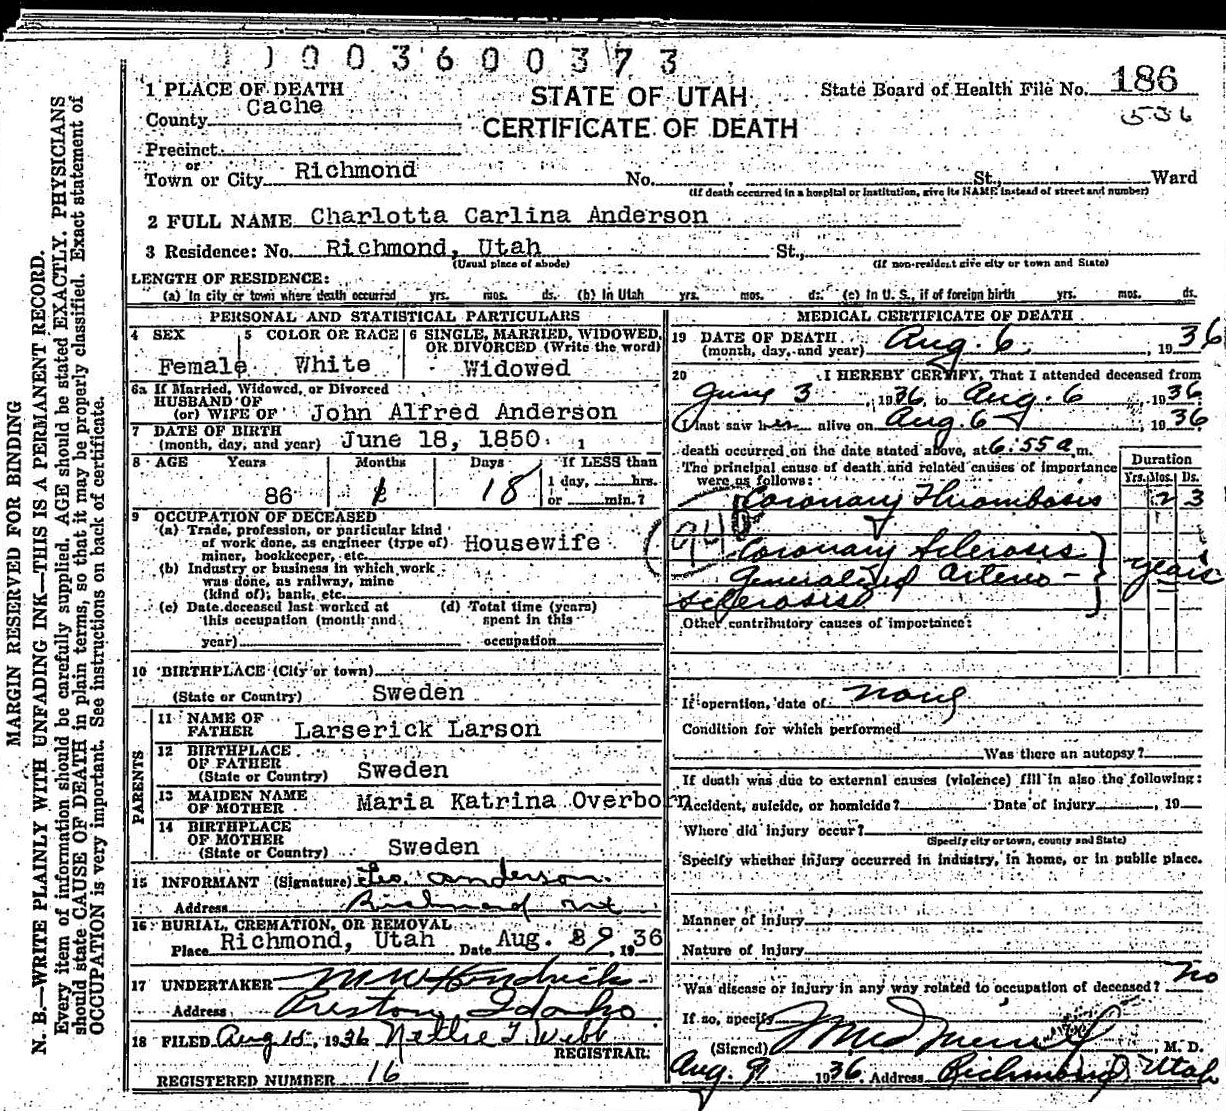 0003600373
1 PLACE OF DEATH
STATE OF UTAH
State Board of Health File No. 186
County Cache
CERTIFICATE OF DEATH
536
Precinct
or
Town or City Richmond No. , St., Ward
(If death occurred in a hospital or institution, give its NAME instead of street and number)
2 FULL NAME Charlotta Carlina Anderson
3 Residence: No. Richmond, Utah St.,
(Usual place of abode) (If non-resident give city or town and State)
LENGTH OF RESIDENCE:
(a) In city or town where death occurred yrs. mos. ds. (b) In Utah yrs. mos. ds. (c) In U. S., if of foreign birth yrs. mos. ds.
PERSONAL AND STATISTICAL PARTICULARS
4 SEX
Female
5 COLOR OR RACE
White
6 SINGLE, MARRIED, WIDOWED,
OR DIVORCED (Write the word)
Widowed
6a If Married, Widowed, or Divorced
HUSBAND OF
(or) WIFE OF John Alfred Anderson
7 DATE OF BIRTH
(month, day, and year) June 18, 1850 1
8 AGE Years Months Days If LESS than
86 1 18 1 day, hrs.
or min.?
9 OCCUPATION OF DECEASED
(a) Trade, profession, or particular kind
of work done, as engineer (type of)
miner, bookkeeper, etc. Housewife
(b) Industry or business in which work
was done, as railway, mine
(kind of), bank, etc.
(c) Date deceased last worked at
this occupation (month and
year)
(d) Total time (years)
spent in this
occupation
10 BIRTHPLACE (City or town)
(State or Country) Sweden
PARENTS
11 NAME OF
FATHER Larserick Larson
12 BIRTHPLACE
OF FATHER
(State or Country) Sweden
13 MAIDEN NAME
OF MOTHER Maria Katrina Overborn
14 BIRTHPLACE
OF MOTHER
(State or Country) Sweden
15 INFORMANT (Signature) Geo. Anderson
Address Richmond Ut
16 BURIAL, CREMATION, OR REMOVAL
Place Richmond, Utah Date Aug. 9, 1936
17 UNDERTAKER M W Hendricks
Address Preston Idaho
18 FILED Aug 15, 1936 Nellie T. Webb
REGISTRAR.
REGISTERED NUMBER 16
MEDICAL CERTIFICATE OF DEATH
19 DATE OF DEATH
(month, day, and year) Aug. 6, 1936
20 I HEREBY CERTIFY, That I attended deceased from
June 3, 1936 to Aug. 6, 1936
I last saw her alive on Aug. 6, 1936
death occurred on the date stated above, at 6:55 a m.
The principal cause of death and related causes of importance
were as follows:
Duration
Yrs. Mos. Ds.
Coronary Thrombosis 2 3
94b
Coronary Sclerosis
Generalized Arterio-
sclerosis
years
Other contributory causes of importance:
If operation, date of none
Condition for which performed
Was there an autopsy?
If death was due to external causes (violence) fill in also the following:
Accident, suicide, or homicide? Date of injury , 19
Where did injury occur?
(Specify city or town, county and State)
Specify whether injury occurred in industry, in home, or in public place.
Manner of injury
Nature of injury
Was disease or injury in any way related to occupation of deceased? no
If so, specify
(Signed) Merrill, M. D.
Aug. 9 1936. Address Richmond, Utah
MARGIN RESERVED FOR BINDING
N. B.—WRITE PLAINLY WITH UNFADING INK—THIS IS A PERMANENT RECORD.
Every item of information should be carefully supplied. AGE should be stated EXACTLY. PHYSICIANS
should state CAUSE OF DEATH in plain terms, so that it may be properly classified. Exact statement of
OCCUPATION is very important. See instructions on back of certificate.